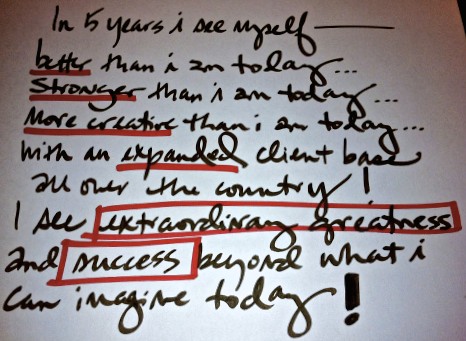 In 5 years i see myself —
better than i am today...
Stronger than i am today...
More creative than i am today...
With an expanded client base
all over the country!
I see extraordinary greatness
and success beyond what i
can imagine today!